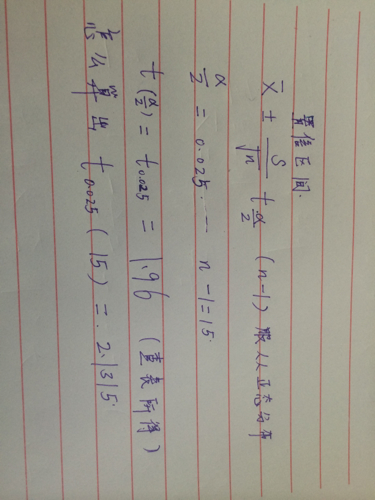 置信区间.
x̄ ± S/√n t α/2 (n-1) 服从正态分布
α/2 = 0.025. n-1=15.
t(α/2) = t0.025 = 1.96 (查表所得)
怎么算出 t0.025 (15) = 2.1315.